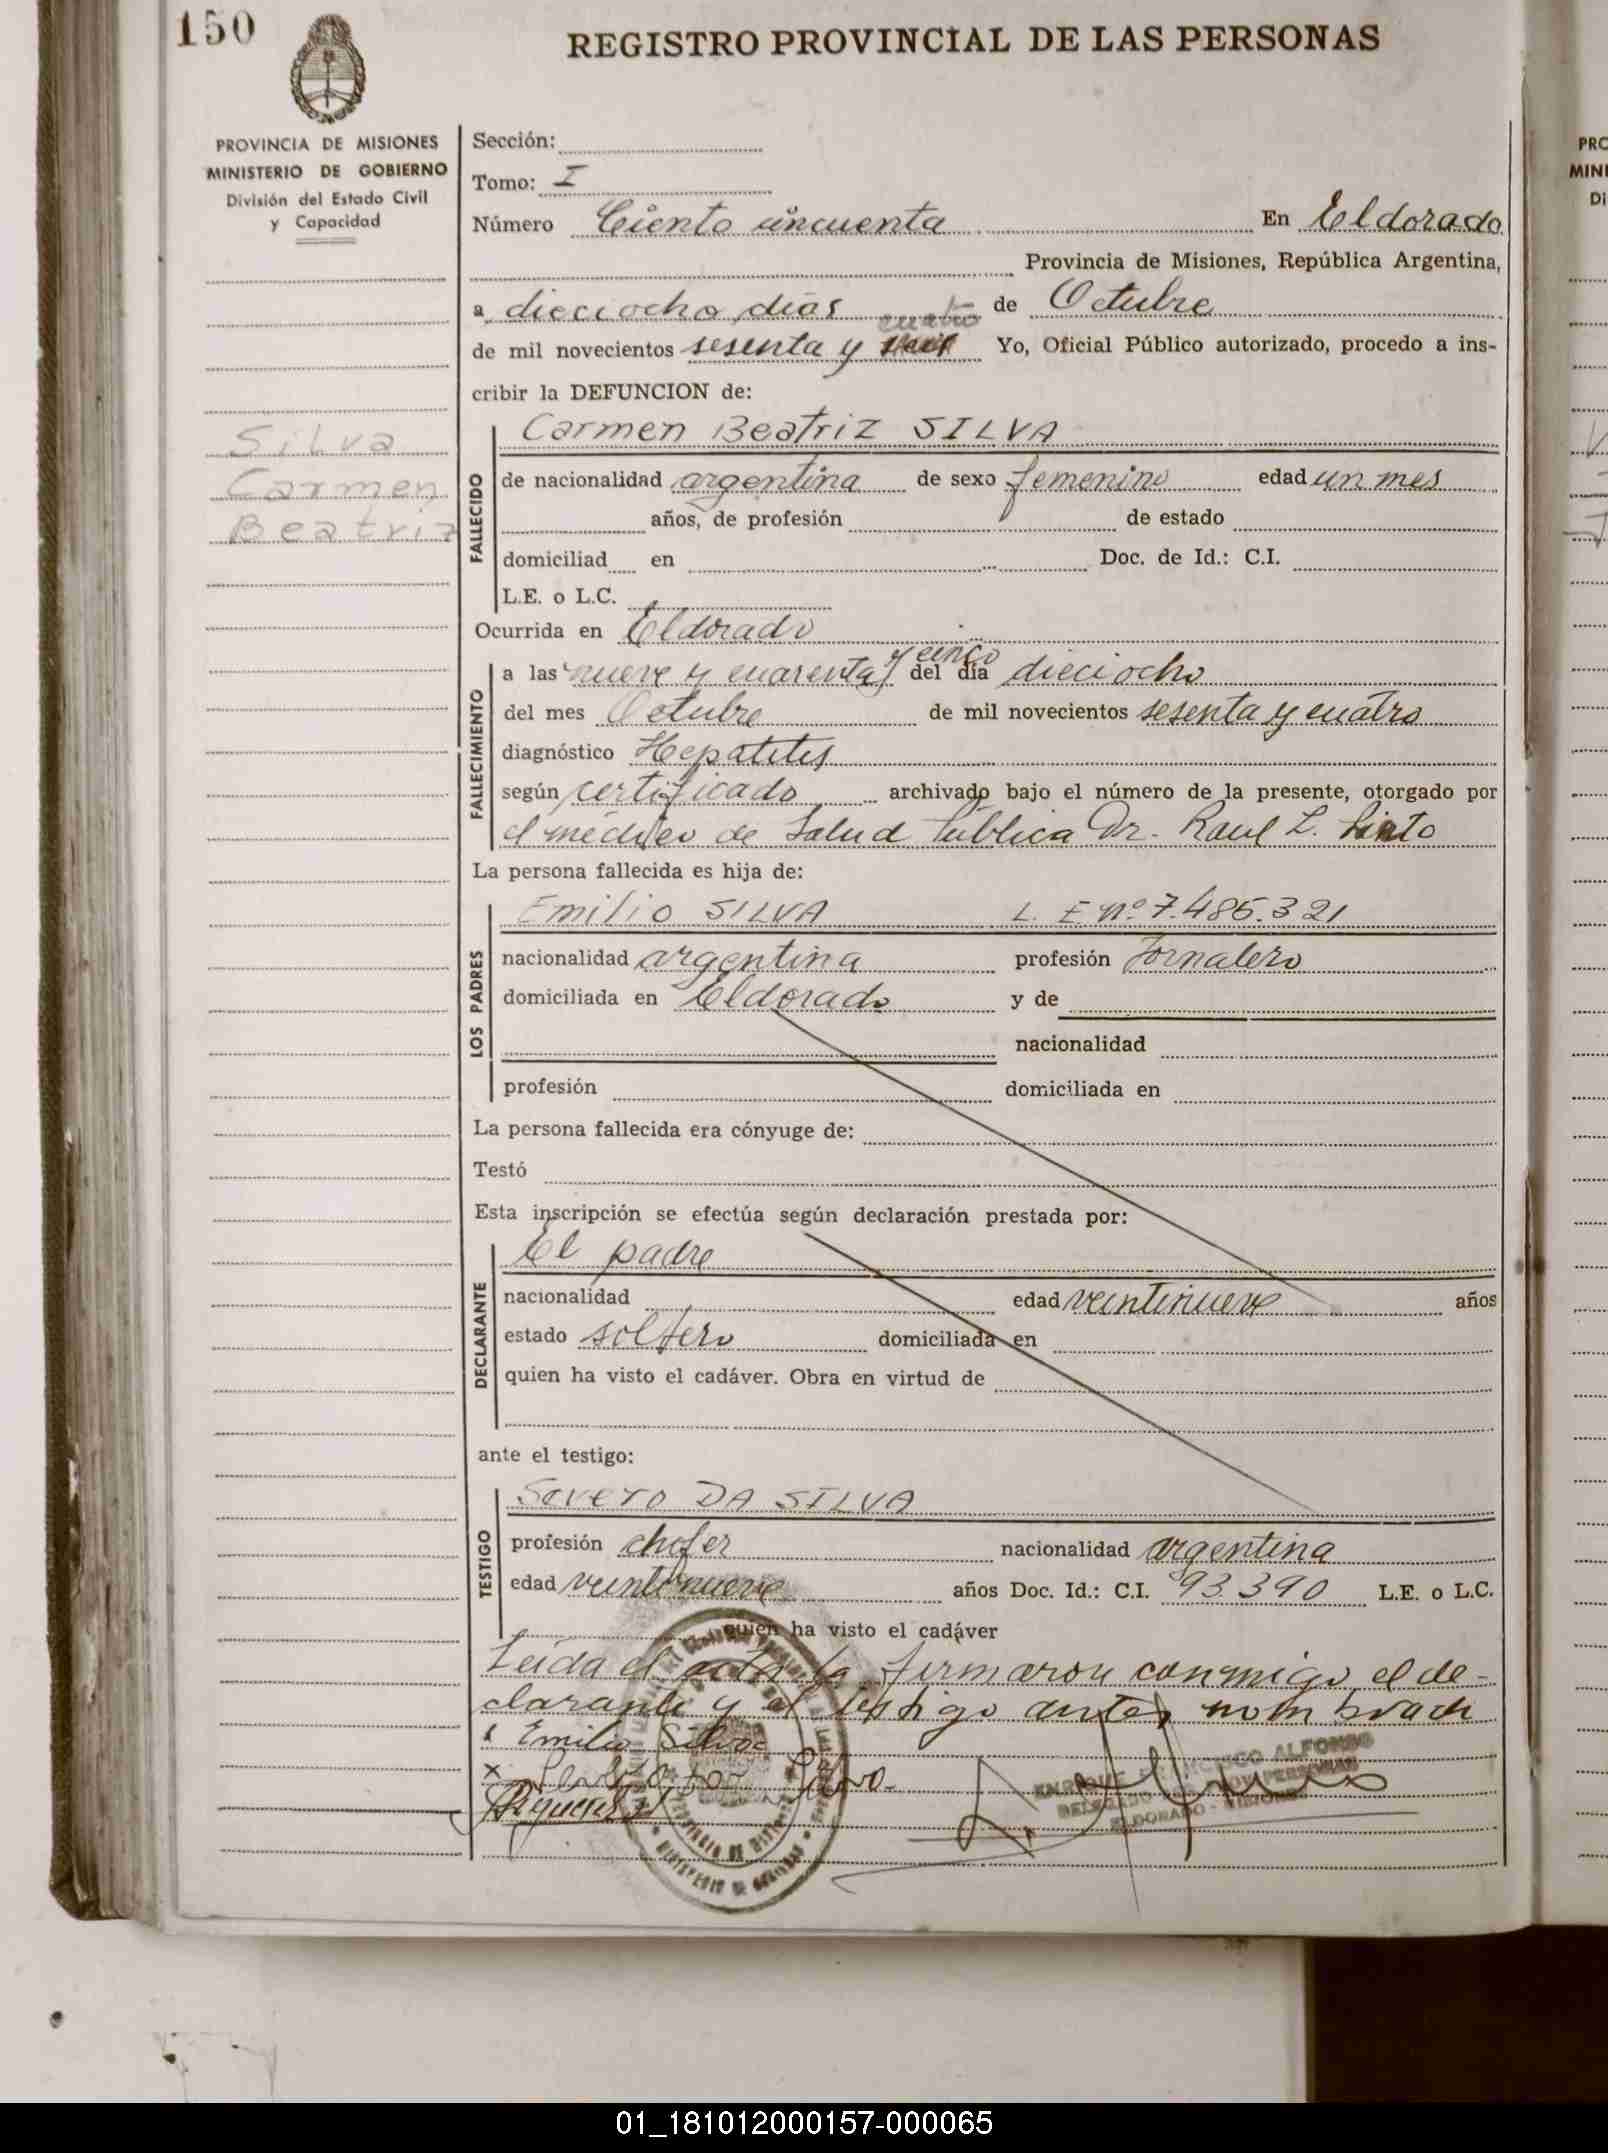 150
REGISTRO PROVINCIAL DE LAS PERSONAS
PROVINCIA DE MISIONES
MINISTERIO DE GOBIERNO
División del Estado Civil
y Capacidad
Silva
Carmen
Beatriz
Sección:
Tomo: I
Número Ciento cincuenta En Eldorado
Provincia de Misiones, República Argentina,
a dieciocho días de Octubre
cuatro
de mil novecientos sesenta y Yo, Oficial Público autorizado, procedo a ins-
cribir la DEFUNCION de:
FALLECIDO
Carmen Beatriz SILVA
de nacionalidad argentina de sexo femenino edad un mes
años, de profesión de estado
domiciliad en Doc. de Id.: C.I.
L.E. o L.C.
Ocurrida en Eldorado
FALLECIMIENTO
y cinco
a las nueve y cuarenta del día dieciocho
del mes Octubre de mil novecientos sesenta y cuatro
diagnóstico Hepatites
según certificado archivado bajo el número de la presente, otorgado por
el médico de Salud Pública Dr. Raul L.
La persona fallecida es hija de:
LOS PADRES
Emilio SILVA L. E nº 7.485.321
nacionalidad argentina profesión Jornalero
domiciliada en Eldorado y de
nacionalidad
profesión domiciliada en
La persona fallecida era cónyuge de:
Testó
Esta inscripción se efectúa según declaración prestada por:
DECLARANTE
El padre
nacionalidad edad veintinueve años
estado soltero domiciliada en
quien ha visto el cadáver. Obra en virtud de
ante el testigo:
TESTIGO
Severo DA SILVA
profesión chofer nacionalidad argentina
edad veintinueve años Doc. Id.: C.I. 93390 L.E. o L.C.
quien ha visto el cadáver
Leida el acta la firmaron conmigo el de-
clarante y el testigo antes nombrado
x Emilio Silva
x Silva
ENRIQUE FRANCISCO ALFONSO
ELDORADO - MISIONES
01_181012000157-000065